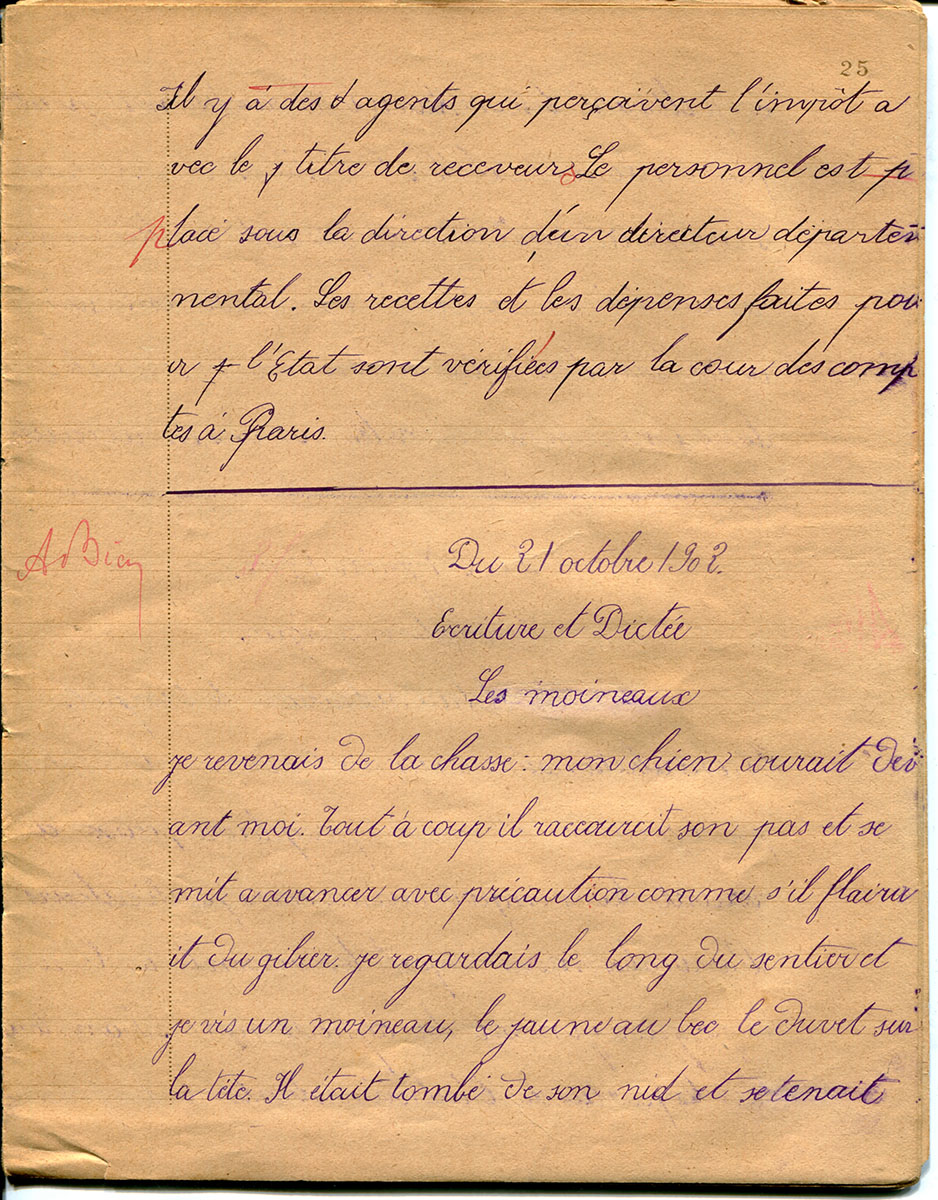 25
Il y à des agents qui perçaivent l'impôt a
vec le titre de receveurs Le personnel est p
placé sous la direction d'un directeur départe
mental. Les recettes et les dépenses faites pou
ur l'Etat sont vérifiées par la cour des comp
tes à Paris.
A. Bien
Du 21 octobre 1902.
Ecriture et Dictée
Les moineaux
je revenais de la chasse : mon chien courait dev
ant moi. Tout à coup il raccourcit son pas et se
mit a avancer avec précaution comme s'il flaira
it du gibier. je regardais le long du sentier et
je vis un moineau, le jaune au bec le duvet sur
la tête. Il était tombé de son nid et se tenait